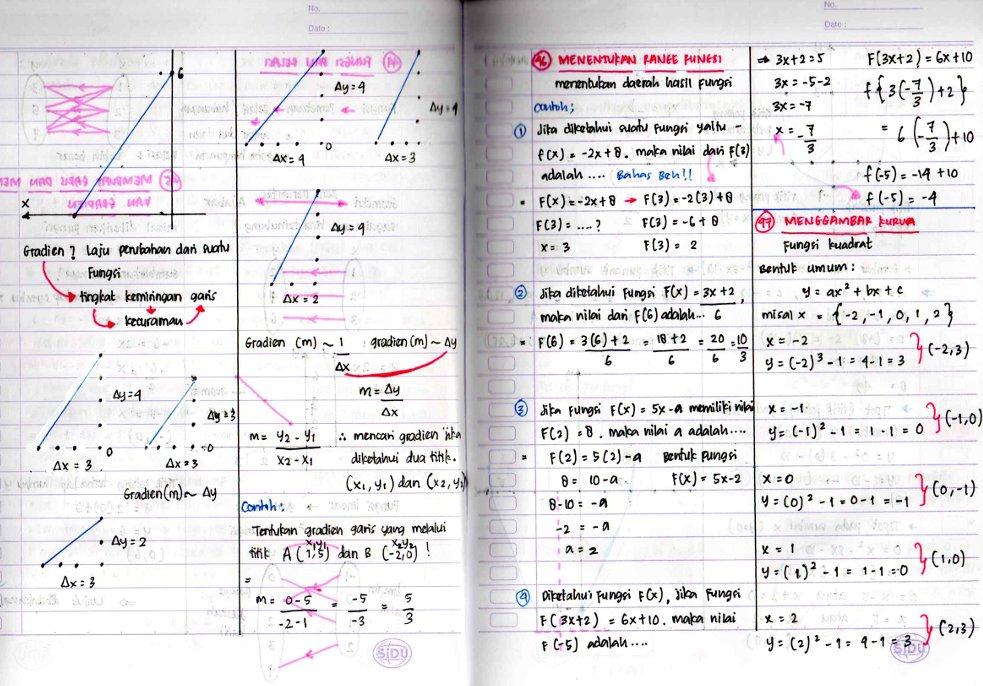 No.
Date :
6
x
Gradien ? Laju perubahan dari suatu
Fungsi
tingkat kemiringan garis
kecuraman
Δy=4
0
Δx = 3
Δy = 3
0
Δx = 3
Gradien(m) ~ Δy
Δy = 2
Δx = 3
Δy = 4
0
Δx = 4
Δy = 4
Δx = 3
Δy = 4
Δx = 2
Gradien (m) ~ 1/Δx gradien(m) ~ Δy
m = Δy/Δx
m = y2 - y1 / x2 - x1
∴ mencari gradien jika
diketahui dua titik.
(x1, y1) dan (x2, y2)
Contoh:
Tentukan gradien garis yang melalui
x1 y1 x2 y2
titik A (1,5) dan B (-2,0) !
=
m = 0-5/-2-1 = -5/-3 = 5/3
SIDU
No.
Date :
46 MENENTUKAN RANGE FUNGSI
menentukan daerah hasil fungsi
contoh;
1 Jika diketahui suatu fungsi yaitu
f(x) = -2x+8. maka nilai dari F(3)
adalah .... Bahas Beh!!
= F(x) = -2x+8 → F(3) = -2(3)+8
F(3) = ....? F(3) = -6+8
x = 3 F(3) = 2
2 Jika diketahui fungsi F(x) = 3x+2/6,
maka nilai dari F(6) adalah...
= F(6) = 3(6)+2/6 18+2/6 = 20/6 = 10/3
3 Jika fungsi F(x) = 5x-a memiliki nilai
F(2) = 8. maka nilai a adalah....
= F(2) = 5(2)-a Bentuk fungsi
8 = 10-a F(x) = 5x-2
8-10 = -a
-2 = -a
a = 2
4 Diketahui fungsi F(x), Jika fungsi
F(3x+2) = 6x+10. maka nilai
F(-5) adalah....
⇒ 3x+2 = 5 F(3x+2) = 6x+10
3x = -5-2 f{3(-7/3)+2}
3x = -7
x = -7/3 = 6(-7/3)+10
f(-5) = -14+10
f(-5) = -4
47 MENGGAMBAR KURVA
Fungsi kuadrat
Bentuk umum :
y = ax² + bx + c
misal x = {-2, -1, 0, 1, 2}
x = -2
y = (-2)² - 1 = 4-1 = 3 } (-2,3)
x = -1
y = (-1)² - 1 = 1-1 = 0 } (-1,0)
x = 0
y = (0)² - 1 = 0-1 = -1 } (0,-1)
x = 1
y = (1)² - 1 = 1-1 = 0 } (1,0)
x = 2
y = (2)² - 1 = 4-1 = 3 } (2,3)
SIDU